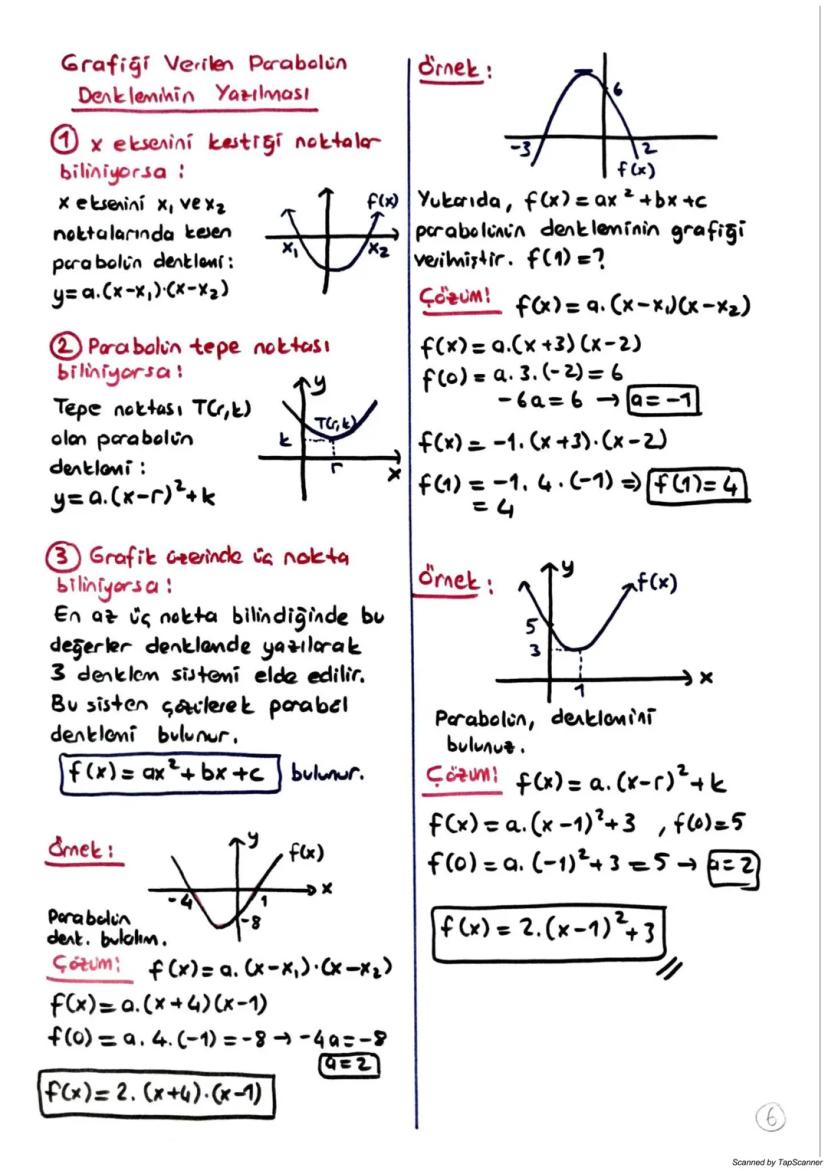 Grafiği Verilen Parabolün
Denkleminin Yazılması
① x eksenini kestiği noktalar
biliniyorsa :
x eksenini x₁ ve x₂
noktalarında kesen
parabolün denklemi :
y = a.(x-x₁).(x-x₂)
f(x)
x₁ x₂
② Parabolün tepe noktası
biliniyorsa :
Tepe noktası T(r,k)
olan parabolün
denklemi :
y = a.(x-r)²+k
y
T(r,k)
k
r
x
③ Grafik üzerinde üç nokta
biliniyorsa :
En az üç nokta bilindiğinde bu
değerler denklemde yazılarak
3 denklem sistemi elde edilir.
Bu sistem çözülerek parabol
denklemi bulunur.
f(x) = ax² + bx + c bulunur.
Örnek :
y
f(x)
-4 1 x
-8
Parabolün
denk. bulalım.
Çözüm: f(x) = a. (x-x₁).(x-x₂)
f(x) = a.(x+4)(x-1)
f(0) = a. 4.(-1) = -8 → -4a = -8
a = 2
f(x) = 2. (x+4).(x-1)
Örnek :
6
-3 2
f(x)
Yukarıda, f(x) = ax² + bx + c
parabolünün denkleminin grafiği
verilmiştir. f(1) = ?
Çözüm: f(x) = a. (x-x₁)(x-x₂)
f(x) = a.(x+3)(x-2)
f(0) = a. 3.(-2) = 6
-6a = 6 → a = -1
f(x) = -1. (x+3).(x-2)
f(1) = -1. 4. (-1) ⇒ f(1) = 4
= 4
Örnek :
y
f(x)
5
3
1
x
Parabolün, denklemini
bulunuz.
Çözüm: f(x) = a. (x-r)² + k
f(x) = a. (x-1)² + 3 , f(0) = 5
f(0) = a. (-1)² + 3 = 5 → a = 2
f(x) = 2. (x-1)² + 3
6
Scanned by TapScanner